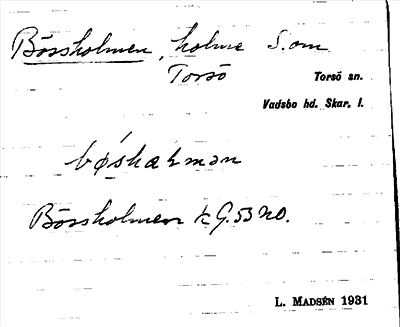 Börsholmen, holme S. om
Torsö
Torsö sn.
Vadsbo hd. Skar. l.
Börsholmen k G. 53 NO.
L. MADSÉN 1931